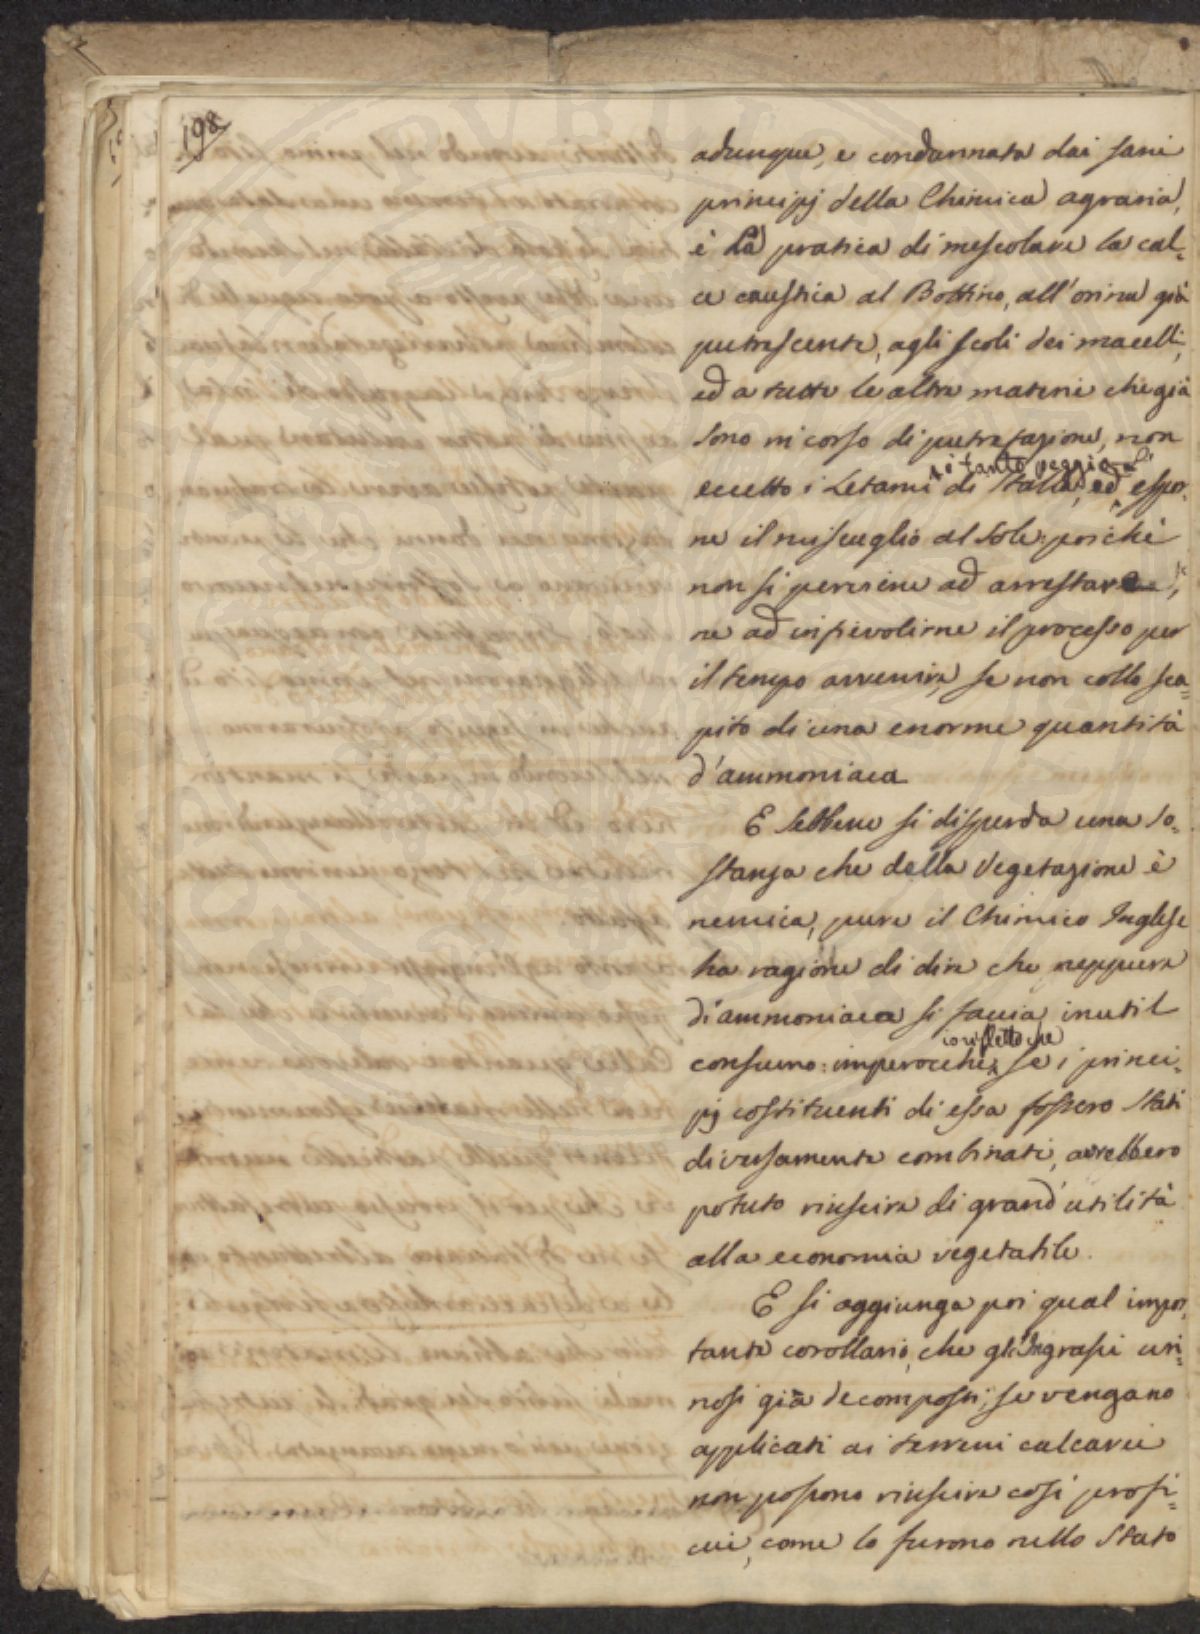 198
adunque, e condannata dai sani
principj della Chimica agraria,
è la pratica di mescolare la cal-
ce caustica al Bottino, all'orina già
putrescente, agli scoli dei macelli,
ed a tutte le altre materie che già
sono in corso di putrefazione, non
di tanto peggio
eccetto i Letami di Stalla, ed espor-
ne il miscuglio al Sole: poichè
non si perviene ad arrestare,
ne ad infievolirne il processo per
il tempo avvenire, se non collo sca-
pito di una enorme quantità
d'ammoniaca
E sebbene si disperda una so-
stanza che della Vegetazione è
nemica, pure il Chimico Inglese
ha ragione di dire che neppure
d'ammoniaca si faccia inutil
io rifletto che
consumo: imperocchè se i princi-
pj costituenti di essa fossero stati
diversamente combinati, avrebbero
potuto riuscire di grand'utilità
alla economia vegetabile.
E si aggiunga poi qual impor-
tante corollario, che gl'Ingrassi uri-
nosi già decomposti, se vengano
applicati ai terreni calcarei
non possono riuscire così profi-
cui, come lo furono nello Stato